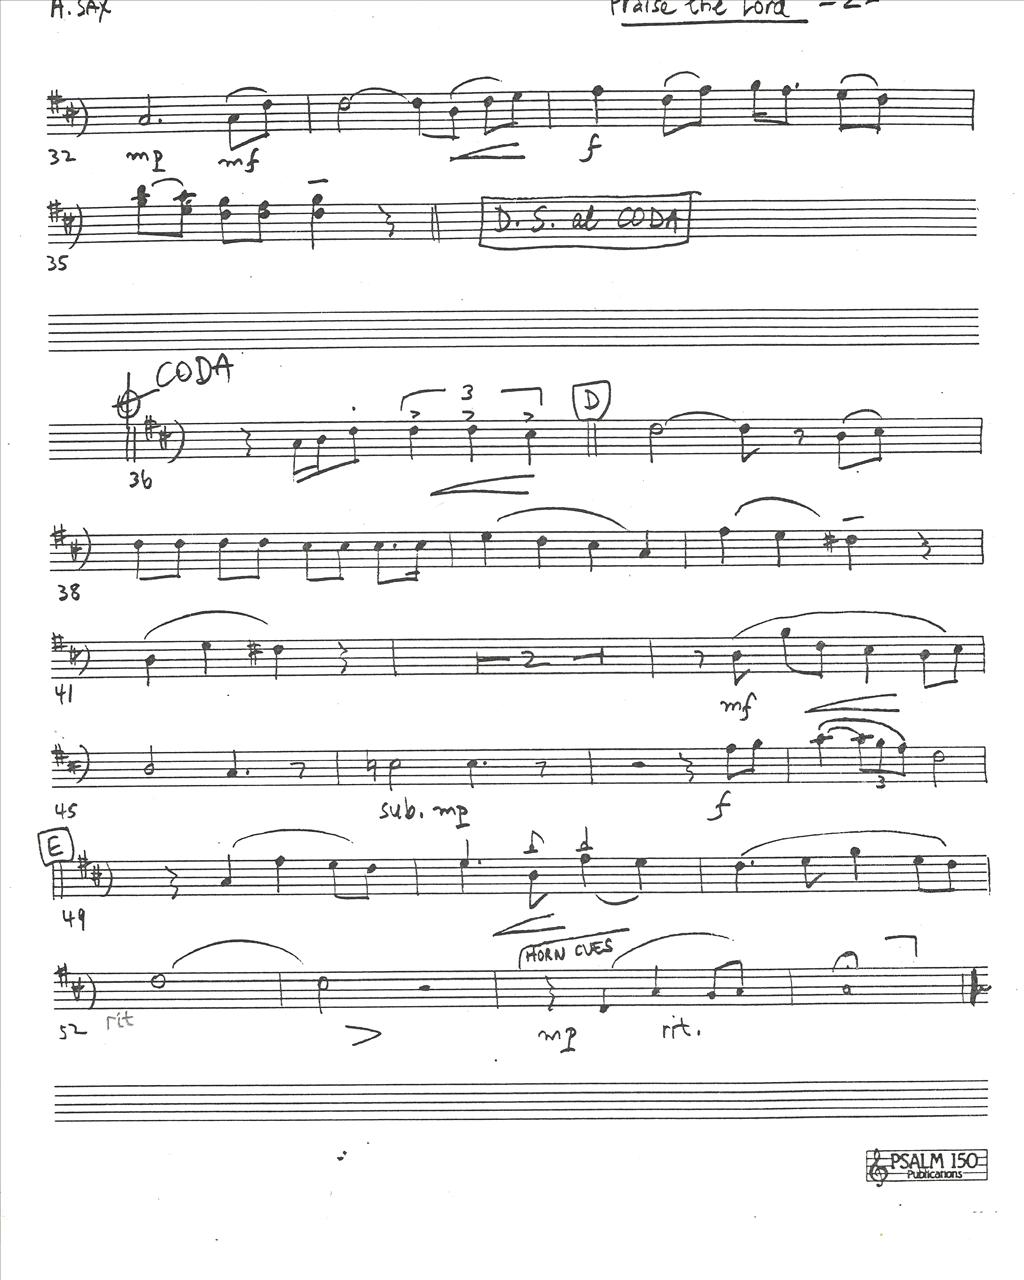 A. SAX Praise the Lord -2-
32 mp mf f
D. S. al CODA
35
CODA
3 D
36
38
2
41 mf
45 sub. mp f 3
E
49
HORN CUES
52 rit mp rit.
PSALM 150
Publications